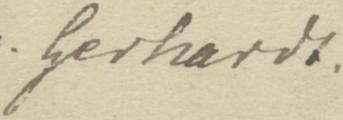 . Gerhardt.